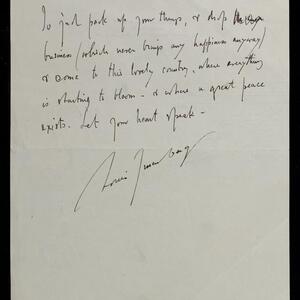 So just pack up your things, & drop
business (which never brings any happiness anyway)
& come to this lovely country, where everything
is starting to bloom - & where a great peace
exists. Let your heart speak -